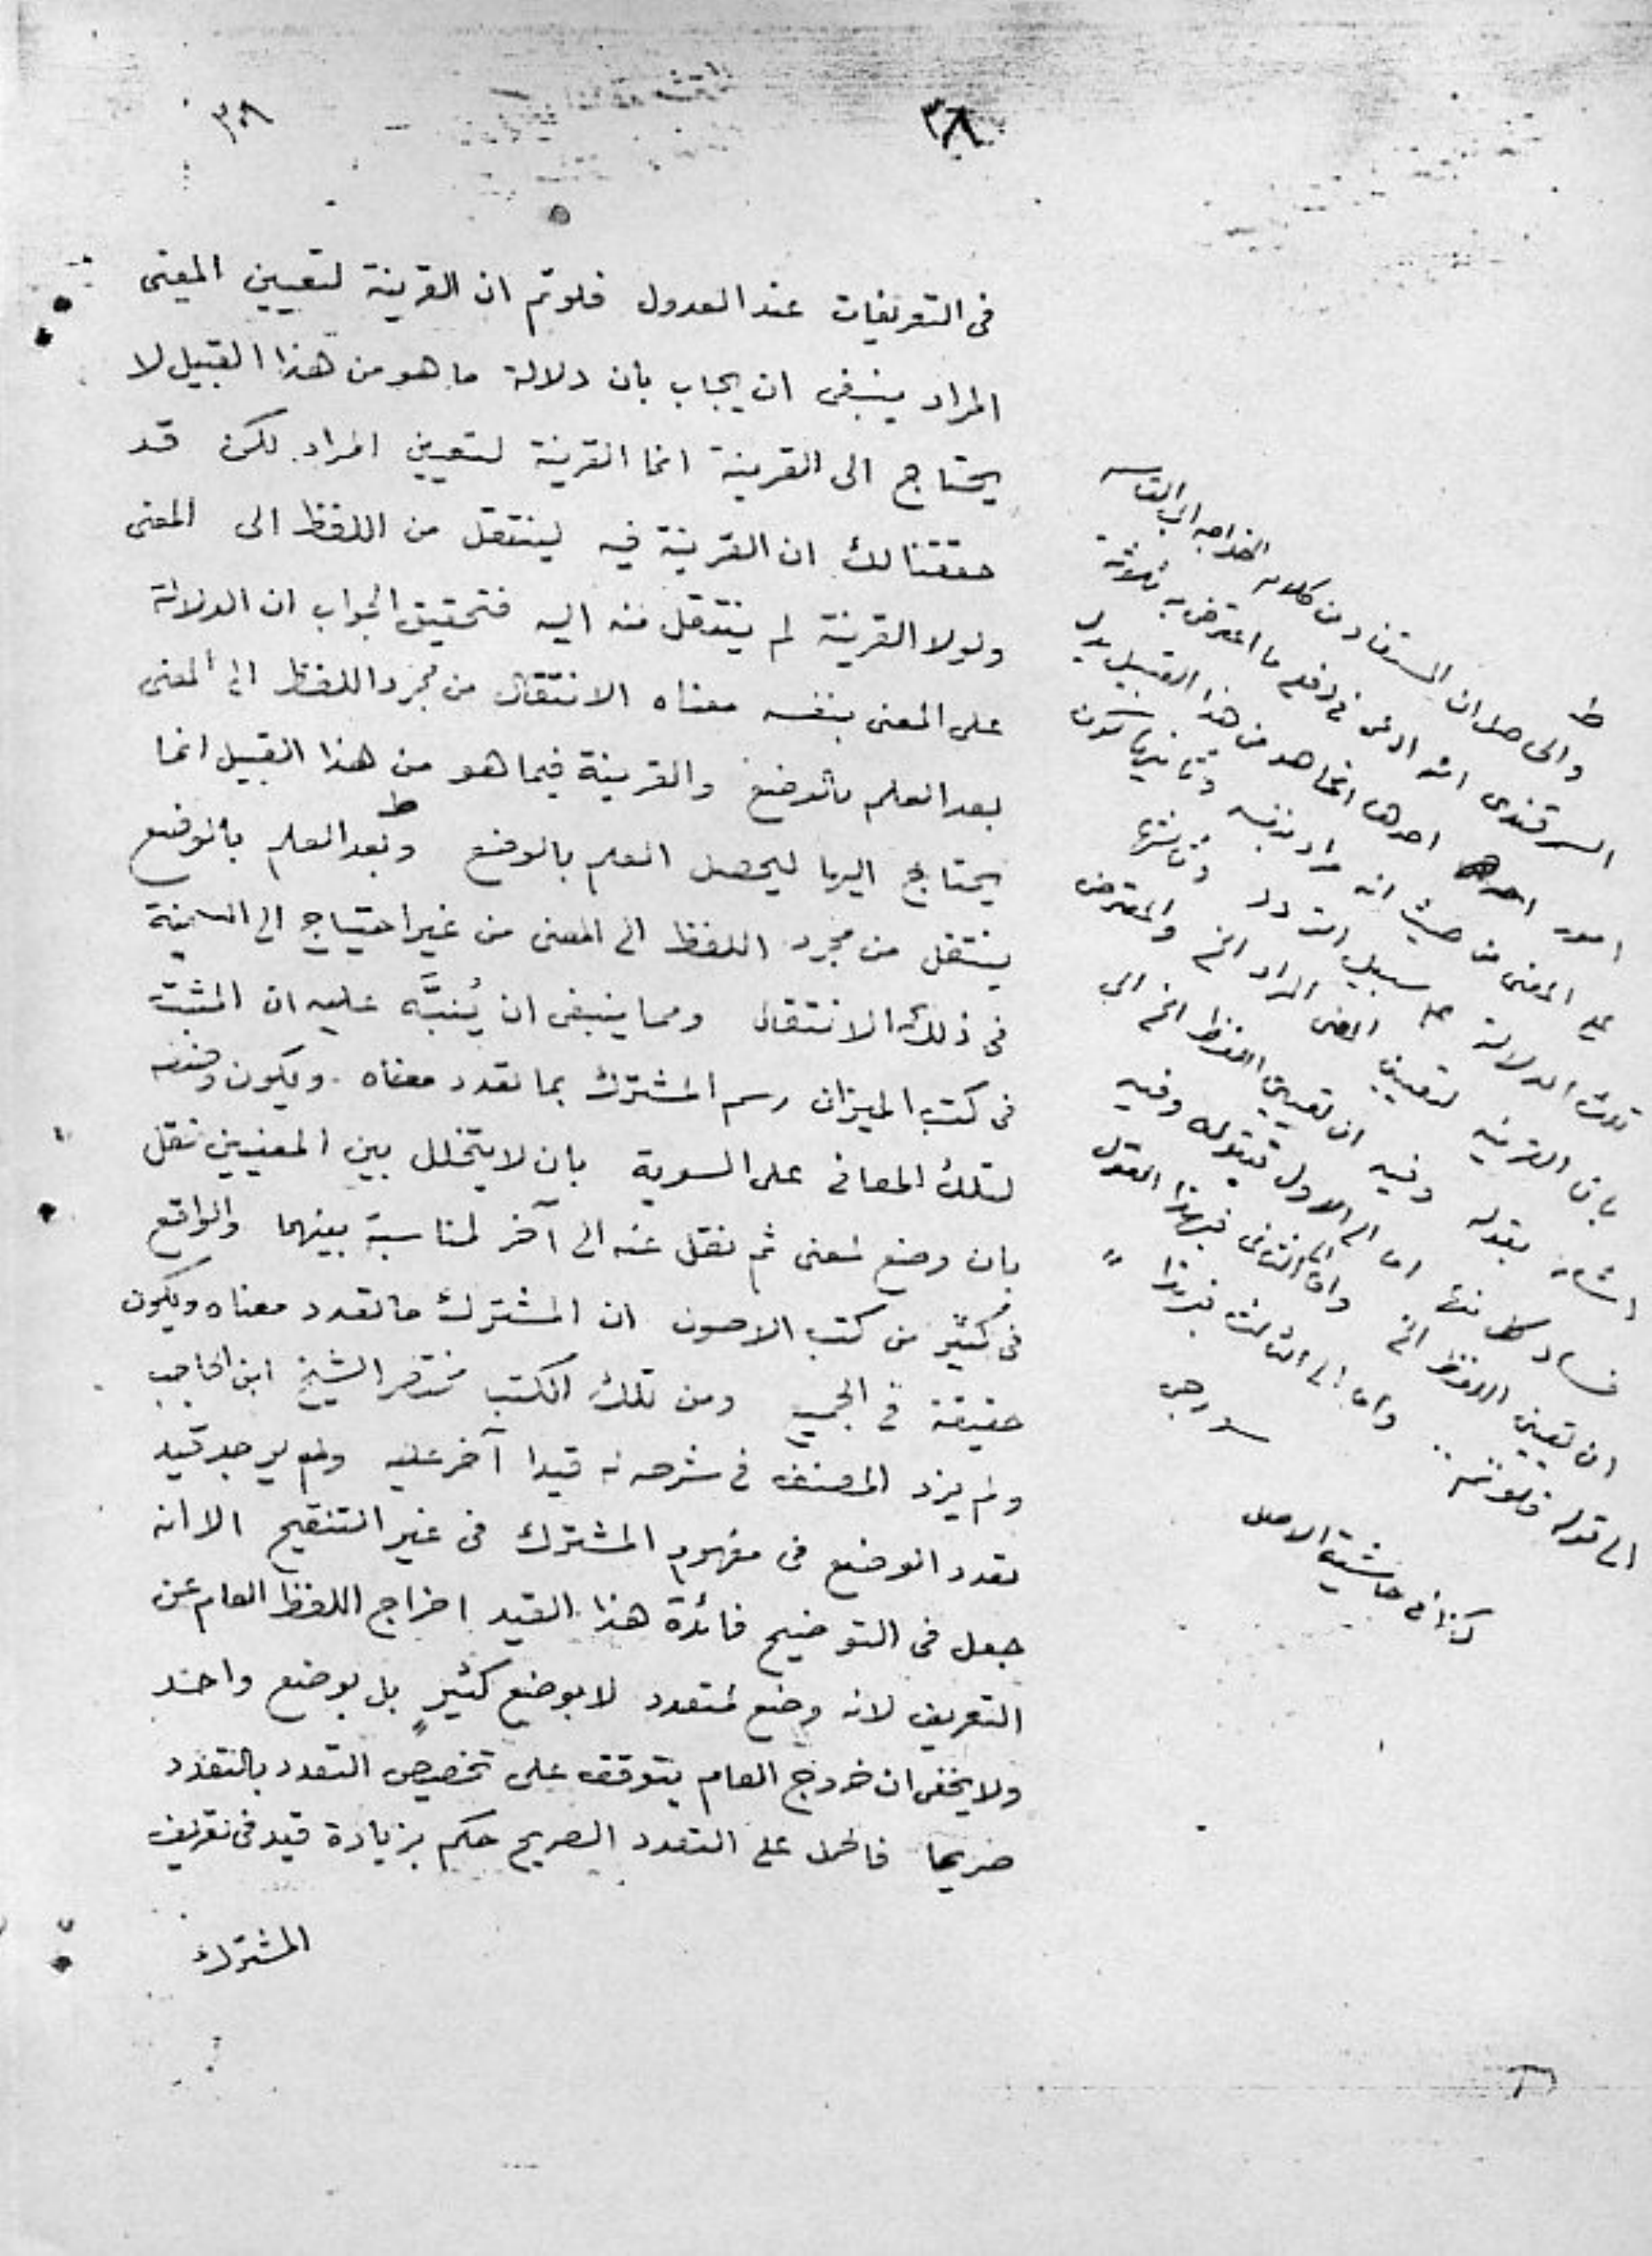 ٣٨
٣٠٨
فى التعريفات عند العدول فلو تم ان القرينة لتعيين المعنى
المراد ينبغى ان يجاب بان دلالة ما هو من هذا القبيل لا
يحتاج الى القرينة انما القرينة لتعيين المراد لكن قد
حققنا لك ان القرينة فيه لينتقل من اللفظ الى المعنى
ولولا القرينة لم ينتقل منه اليه فتحقيق الجواب ان الدلالة
على المعنى بنفسه معناه الانتقال من مجرد اللفظ الى المعنى
بعد العلم بالوضع والقرينة فيما هو من هذا القبيل انما
يحتاج اليها ليحصل العلم بالوضع وبعد العلم بالوضع
ط
ينتقل من مجرد اللفظ الى المعنى من غير احتياج الى
فى ذلك الانتقال ومما ينبغى ان يُنبَّه عليه ان المثبت
فى كتب الميزان رسم المشترك بما تعدد معناه ويكون وضعه
لتلك المعانى على السوية بان لا يتخلل بين المعنيين نقل
بان وضع لمعنى ثم نقل عنه الى آخر لمناسبة بينهما والواقع
فى كثير من كتب الاصول ان المشترك ما تعدد معناه ويكون
حقيقة فى الجميع ومن تلك الكتب مختصر الشيخ ابن الحاجب
ولم يزد المصنف فى شرحه له قيدا آخر عليه ولم يوجد قيد
تعدد الوضع فى مفهوم المشترك فى غير التنقيح الا انه
جعل فى التوضيح فائدة هذا القيد اخراج اللفظ العام عن
التعريف لانه وضع لمتعدد لا بوضع كثير بل بوضع واحد
ولا يخفى ان خروج العام يتوقف على تخصيص التعدد بالتعدد
صريحا فالحمل على التعدد الصريح حكم بزيادة قيد فى تعريف
المشترك
ط
والحاصل ان المستفاد من كلام الخواجه ابى القاسم
السمرقندى انه ادعى فى دفع ما اعترض به ثلاثة
امور احدها انما هو من هذا القبيل يدل
على المعنى من حيث انه مراد بنفسه وثانيها كون
تلك الدلالة على سبيل التردد وثالثها
بان القرينة لتعيين المعنى المراد الخ والمعترض
اشار بقوله وفيه ان تعيين اللفظ الخ الى
فساد كل منها اما الى الاول فبقوله وفيه
ان تعيين اللفظ الخ واما الثانى فبهذا القول
الى قوله فلو تم واما الى الثالث فبهذا

كذا فى حاشية الاصل